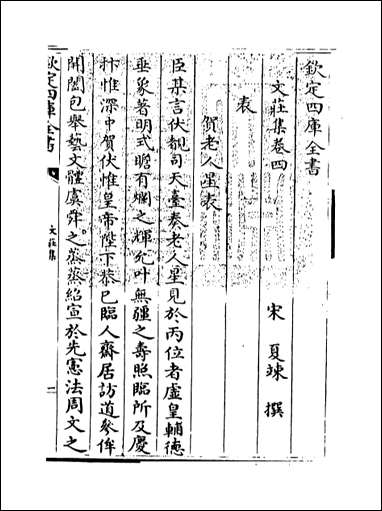 欽定四庫全書
文莊集卷四
宋 夏竦 撰
表
賀老人星表
臣某言伏覩司天臺奏老人星見於丙位者虛皇輔德
垂象著明式瞻有爛之輝允叶無疆之壽照臨所及慶
抃惟深中賀伏惟皇帝陛下恭已臨人齋居訪道參侔
開闔包舉藝文體虞舜之烝烝紹宣於先憲法周文之
欽定四庫全書
文莊集